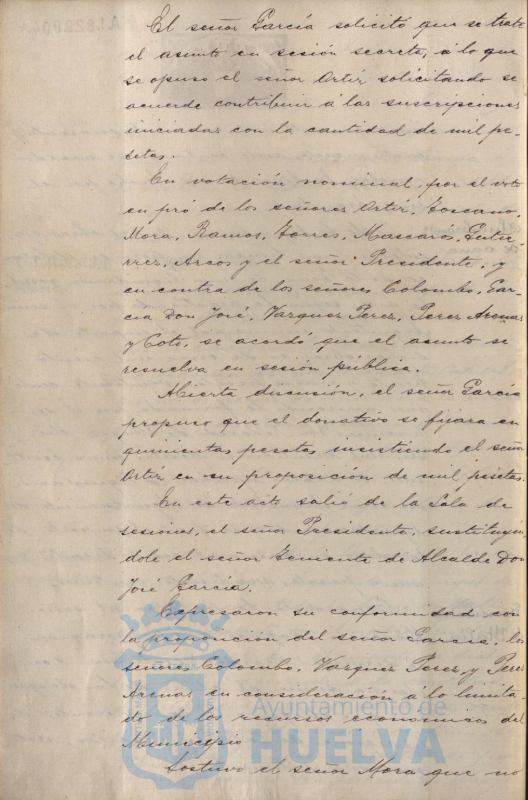 El señor García solicitó que se trate
el asunto en sesión secreta, á lo que
se opuso el señor Ortiz solicitando se
acuerde contribuir á las suscripciones
iniciadas con la cantidad de mil pe-
setas.
En votación nominal, por el voto
en pró de los señores Ortiz, Toscano,
Mora, Ramos, Torres, Mascaros, Gutie-
rrez, Arcos y el señor Presidente, y
en contra de los señores Colombo, Gar-
cia Don José, Vazquez Perez, Perez Arenas
y Coto, se acordó que el asunto se
resuelva en sesión pública.
Abierta discusión, el señor García
propuso que el donativo se fijara en
quinientas pesetas insistiendo el señor
Ortiz en su proposición de mil pesetas.
En este acto salió de la Sala de
sesiones, el señor Presidente, sustituyen-
dole el señor Teniente de Alcalde Don
José García.
Expresaron su conformidad con
la proposición del señor García, los
señores Colombo, Vazquez Perez y Perez
Arenas en consideración á lo limita
do de los recursos económicos del
Municipio
Sostuvo el señor Mora que no
Ayuntamiento de
HUELVA